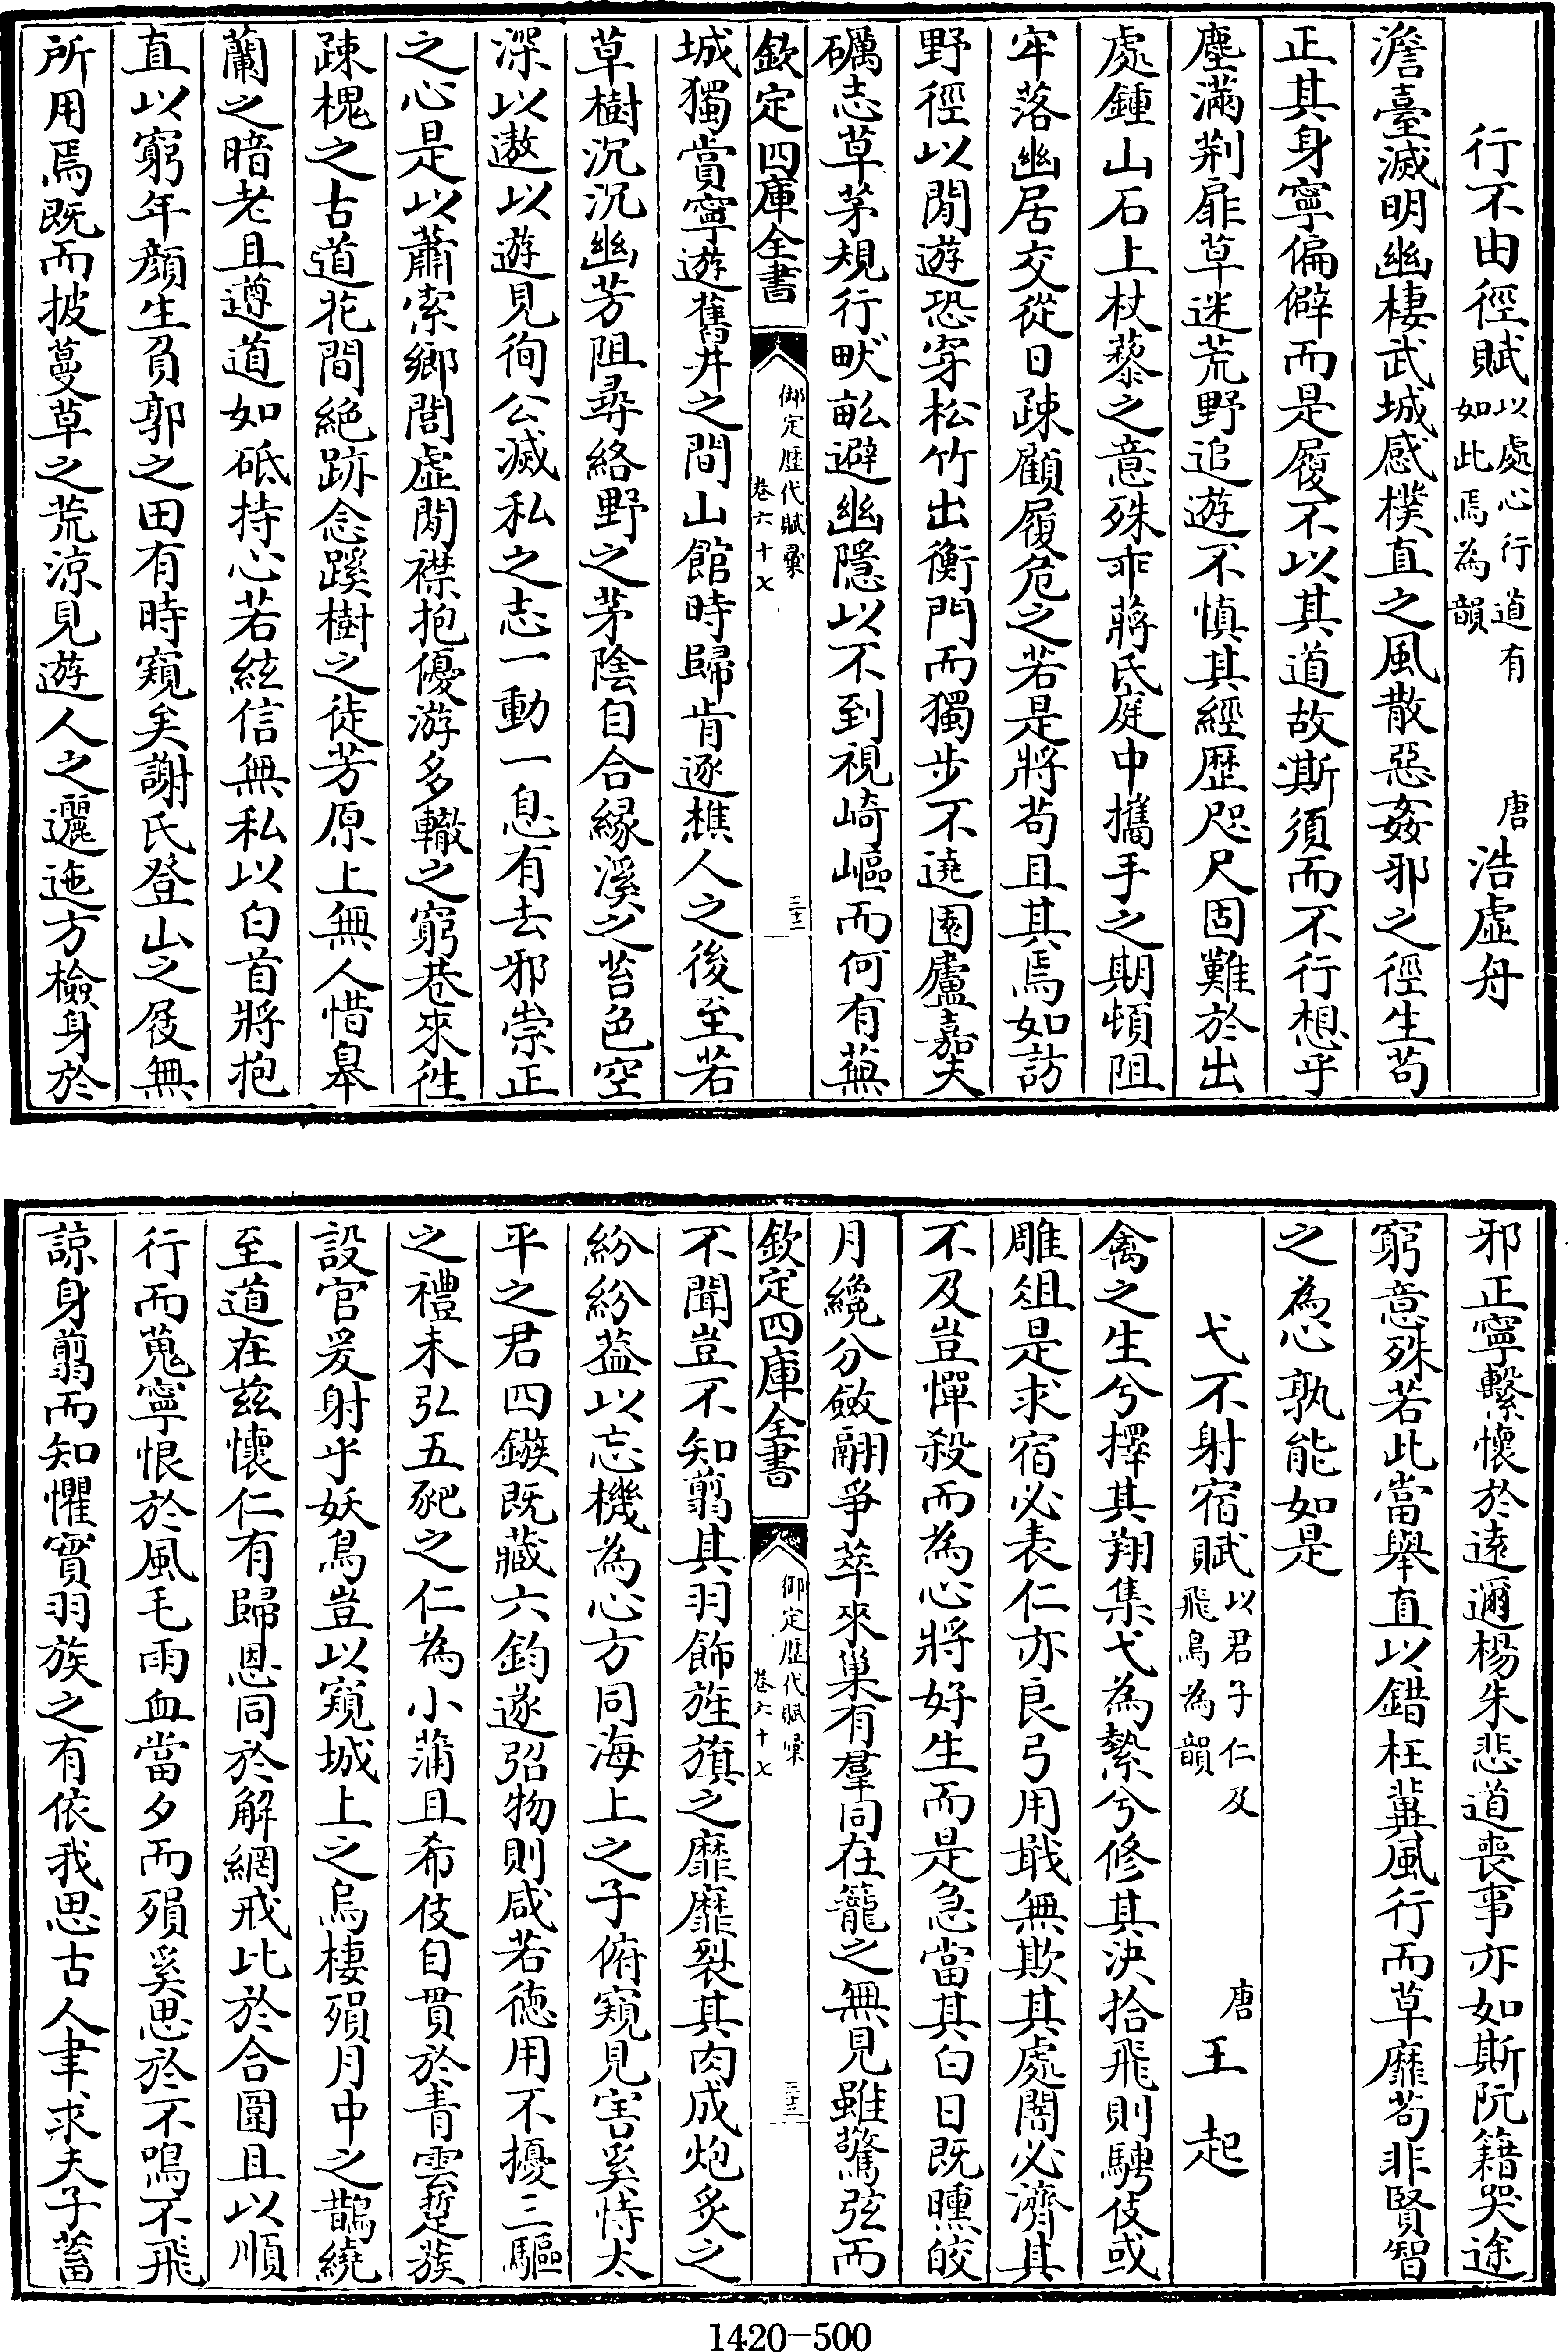 行不由徑賦以處心行道有如此焉為韻 唐浩虛舟
澹臺滅明幽棲武城感樸直之風散惡姦邪之徑生苟
正其身寧偏僻而是履不以其道故斯須而不行想乎
塵滿荆扉草迷荒野追遊不慎其經歴咫尺固難於出
處鍾山石上杖藜之意殊乖蔣氏庭中攜手之期頓阻
牢落幽居交從日疎顧履危之若是將苟且其焉如訪
野徑以閒遊恐穿松竹出衡門而獨步不遶園廬嘉夫
礪志草茅規行畎畝避幽隱以不到視崎嶇而何有蕪
欽定四庫全書 御定歴代賦彙 卷六十七 三十二
城獨賞寧遊舊井之間山館時歸肯逐樵人之後至若
草樹沉沉幽芳阻尋絡野之茅陰自合縁溪之苔色空
深以遨以遊見徇公滅私之志一動一息有去邪崇正
之心是以蕭索鄉閭虛閒襟抱優游多轍之窮巷來徃
疎槐之古道花間絶跡念蹊樹之徒芳原上無人惜臯
蘭之暗老且遵道如砥持心若絃信無私以白首將抱
直以窮年顏生負郭之田有時窺矣謝氏登山之屐無
所用焉既而披蔓草之荒涼見遊人之邐迤方檢身於
邪正寧繫懷於遠邇楊朱悲道喪事亦如斯阮籍哭途
窮意殊若此當舉直以錯枉冀風行而草靡苟非賢智
之為心孰能如是
弋不射宿賦以君子仁及飛鳥為韻 唐王起
禽之生兮擇其翔集弋為縶兮修其決拾飛則騁伎或
雕俎是求宿必表仁亦良弓用戢無欺其處闇必濟其
不及豈憚殺而為心將好生而是急當其白日既曛皎
月纔分斂翮爭萃來巢有羣同在籠之無見雖驚弦而
欽定四庫全書 御定歴代賦彙 卷六十七 三十三
不聞豈不知翦其羽飾旌旗之靡靡裂其肉成炮炙之
紛紛葢以忘機為心方同海上之子俯窺見害奚恃太
平之君四鏃既藏六鈞遂弨物則咸若徳用不擾三驅
之禮未弘五豝之仁為小蒲且希伎自貫於青雲蹔蔟
設官爰射乎妖鳥豈以窺城上之烏棲殞月中之鵲繞
至道在兹懷仁有歸恩同於解網戒比於合圍且以順
行而蒐寧恨於風毛雨血當夕而殞奚思於不鳴不飛
諒身翦而知懼實羽族之有依我思古人聿求夫子蓄
1420-500